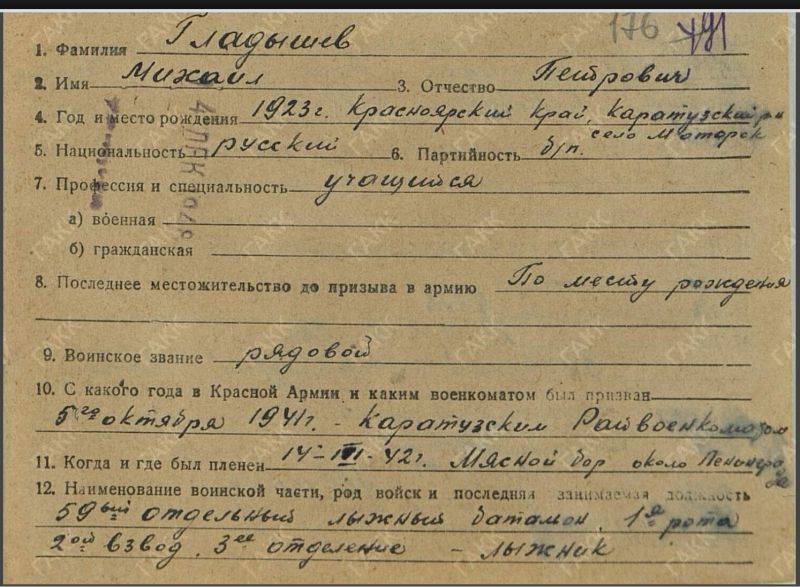 176 791
1. Фамилия Гладышев
2. Имя Михаил 3. Отчество Петрович
4. Год и место рождения 1923 г. Красноярский край, Каратузский р-н
село Моторск
5. Национальность русский 6. Партийность б/п.
7. Профессия и специальность учащийся
а) военная
б) гражданская
8. Последнее местожительство до призыва в армию По месту рождения
9. Воинское звание рядовой
10. С какого года в Красной Армии и каким военкоматом был призван
5го октября 1941 г. - Каратузским Райвоенкоматом
11. Когда и где был пленен 14-III-42 г. Мясной бор около Ленинграда
12. Наименование воинской части, род войск и последняя занимаемая должность
59ый отдельный лыжный батальон, 1я рота
2ой взвод, 3ее отделение - лыжник
ГАКК